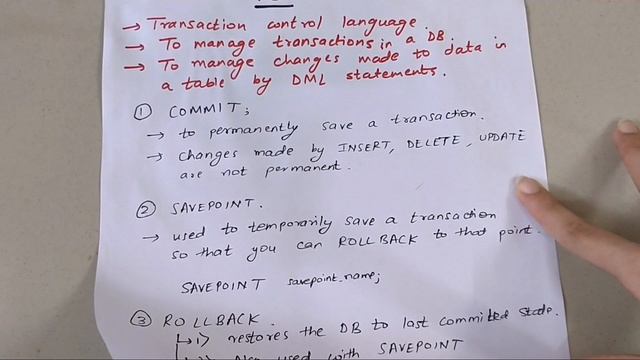 → Transaction control language.
→ To manage transactions in a DB.
→ To manage changes made to data in
a table by DML statements.
① COMMIT;
→ to permanently save a transaction.
→ changes made by INSERT, DELETE, UPDATE
are not permanent.
② SAVEPOINT.
→ used to temporarily save a transaction
so that you can ROLLBACK to that point.
SAVEPOINT savepoint_name;
③ ROLLBACK.
→ i) restores the DB to last committed state.
Also used with SAVEPOINT